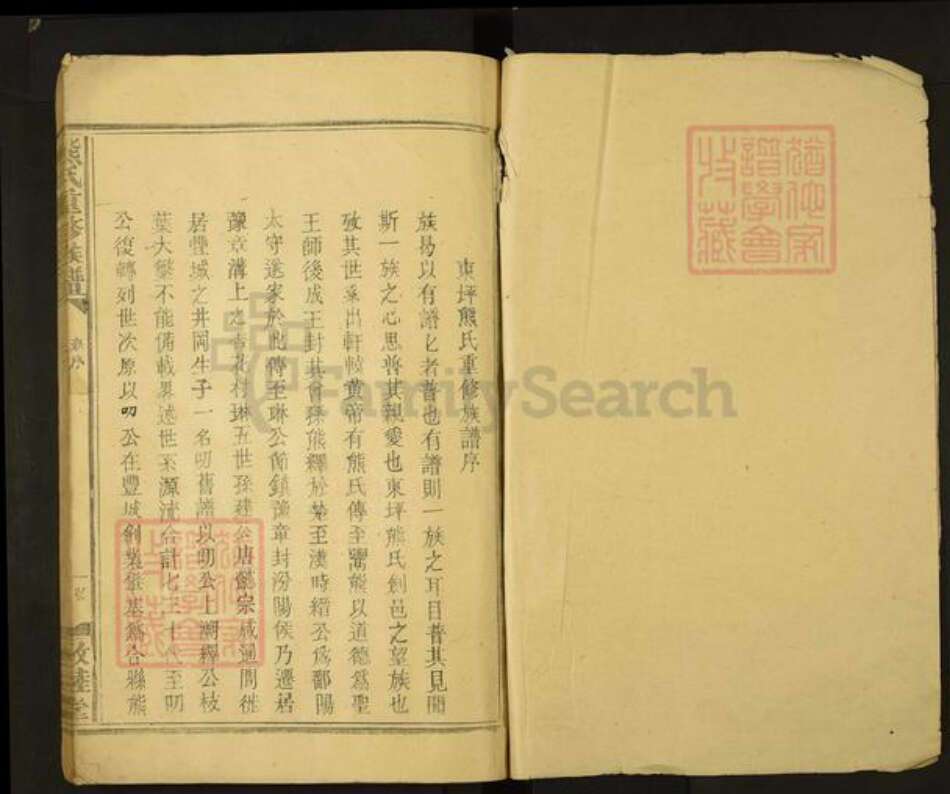 東坪熊氏重修族譜序
族曷以有譜匕者普也有譜則一族之耳目普其見聞
斯一族之心思普其親愛也東坪熊氏劍邑之望族也
攷其世系出軒轅黄帝有熊氏傳至鬻熊以道德爲聖
王師後成王封其曾孫熊繹於楚至漢時縉公爲鄱陽
太守遂家於此傳至琳公節鎮豫章封汾陽侯乃遷居
豫章溝上之杏花村琳五世孫建公唐懿宗咸通間徙
居豐城之井岡生子一名叨舊譜以叨公上溯繹公枝
葉大繁不能備載畧述世系源流合計七十八至叨
公復轉列世次原以叨公在豐城創業肇基爲合縣熊
熊氏重修族譜
敦睦堂
猶他家
譜學會
收藏
猶他家
譜學會
收藏
FamilySearch